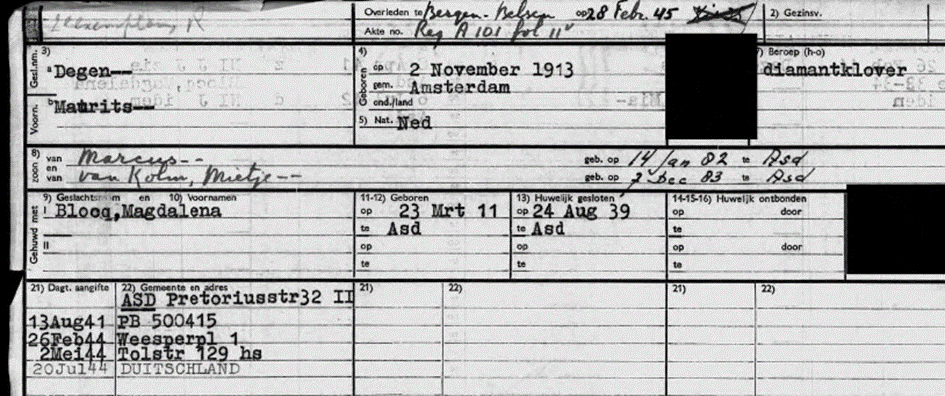 Overleden te Bergen-Belsen op 28 Febr. 45
2) Gezinsv.
Akte no. Reg A 101 fol 11v
Gesl.nm. 3) a Degen--
Voorn. b Maurits--
4) Geboren op 2 November 1913
gem. Amsterdam
ond./land
5) Nat. Ned
7) Beroep (h-o)
diamantklover
8) zoon van Marcus-- geb. op 14 Jan 82 te Asd
en van van Kolm, Mietje-- geb. op 2 Dec 83 te Asd
Gehuwd met
9) Geslachtsnam en 10) Voornamen
I Blocq, Magdalena
II
11-12) Geboren
op 23 Mrt 11
te Asd
op
te
13) Huwelijk gesloten
op 24 Aug 39
te Asd
op
te
14-15-16) Huwelijk ontbonden
op door
te
op door
te
21) Dagt. aangifte 22) Gemeente en adres 21) 22) 21) 22)
ASD Pretoriusstr32 II
13Aug41 PB 500415
26Feb44 Weesperpl 1
2Mei44 Tolstr 129 hs
20Jul44 DUITSCHLAND